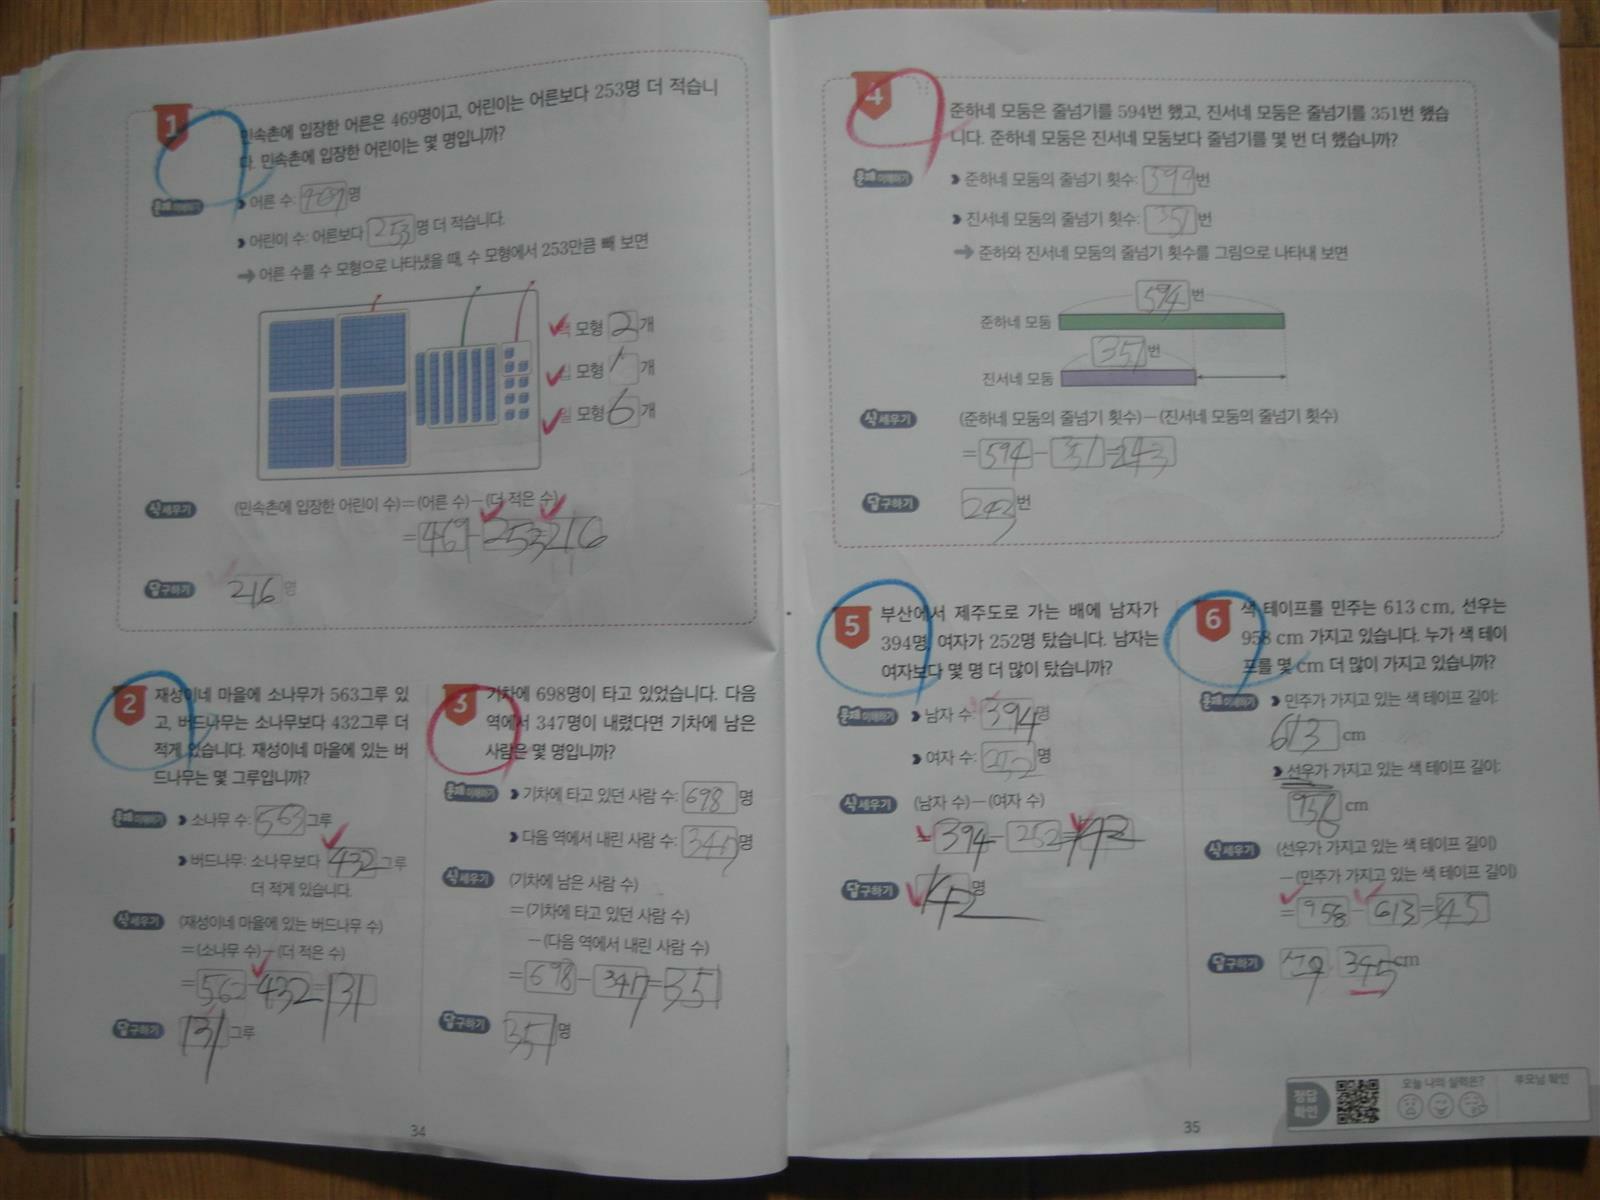 1
민속촌에 입장한 어른은 469명이고, 어린이는 어른보다 253명 더 적습니
다. 민속촌에 입장한 어린이는 몇 명입니까?
문제이해하기
어른 수: 469명
어린이 수: 어른보다 253명 더 적습니다.
→ 어른 수를 수 모형으로 나타냈을 때, 수 모형에서 253만큼 빼 보면
백 모형 2개
십 모형 1개
일 모형 6개
식세우기
(민속촌에 입장한 어린이 수)=(어른 수)-(더 적은 수)
=469-253=216
답구하기
216명
2
재성이네 마을에 소나무가 563그루 있
고, 버드나무는 소나무보다 432그루 더
적게 있습니다. 재성이네 마을에 있는 버
드나무는 몇 그루입니까?
문제이해하기
소나무 수: 563그루
버드나무: 소나무보다 432그루
더 적게 있습니다.
식세우기
(재성이네 마을에 있는 버드나무 수)
=(소나무 수)-(더 적은 수)
=562-432=131
답구하기
131그루
3
기차에 698명이 타고 있었습니다. 다음
역에서 347명이 내렸다면 기차에 남은
사람은 몇 명입니까?
문제이해하기
기차에 타고 있던 사람 수: 698명
다음 역에서 내린 사람 수: 347명
식세우기
(기차에 남은 사람 수)
=(기차에 타고 있던 사람 수)
-(다음 역에서 내린 사람 수)
=698-347=351
답구하기
351명
34
4
준하네 모둠은 줄넘기를 594번 했고, 진서네 모둠은 줄넘기를 351번 했습
니다. 준하네 모둠은 진서네 모둠보다 줄넘기를 몇 번 더 했습니까?
문제이해하기
준하네 모둠의 줄넘기 횟수: 번
진서네 모둠의 줄넘기 횟수: 351번
→ 준하와 진서네 모둠의 줄넘기 횟수를 그림으로 나타내 보면
594번
준하네 모둠
351번
진서네 모둠
식세우기
(준하네 모둠의 줄넘기 횟수)-(진서네 모둠의 줄넘기 횟수)
=594-351=243
답구하기
243번
5
부산에서 제주도로 가는 배에 남자가
394명, 여자가 252명 탔습니다. 남자는
여자보다 몇 명 더 많이 탔습니까?
문제이해하기
남자 수: 394명
여자 수: 252명
식세우기
(남자 수)-(여자 수)
=394-252=142
답구하기
142명
6
색 테이프를 민주는 613 cm, 선우는
958 cm 가지고 있습니다. 누가 색 테이
프를 몇 cm 더 많이 가지고 있습니까?
문제이해하기
민주가 가지고 있는 색 테이프 길이:
613 cm
선우가 가지고 있는 색 테이프 길이:
958 cm
식세우기
(선우가 가지고 있는 색 테이프 길이)
-(민주가 가지고 있는 색 테이프 길이)
=958-613=345
답구하기
선우, 345cm
35
정답
확인
오늘 나의 실력은?
부모님 확인